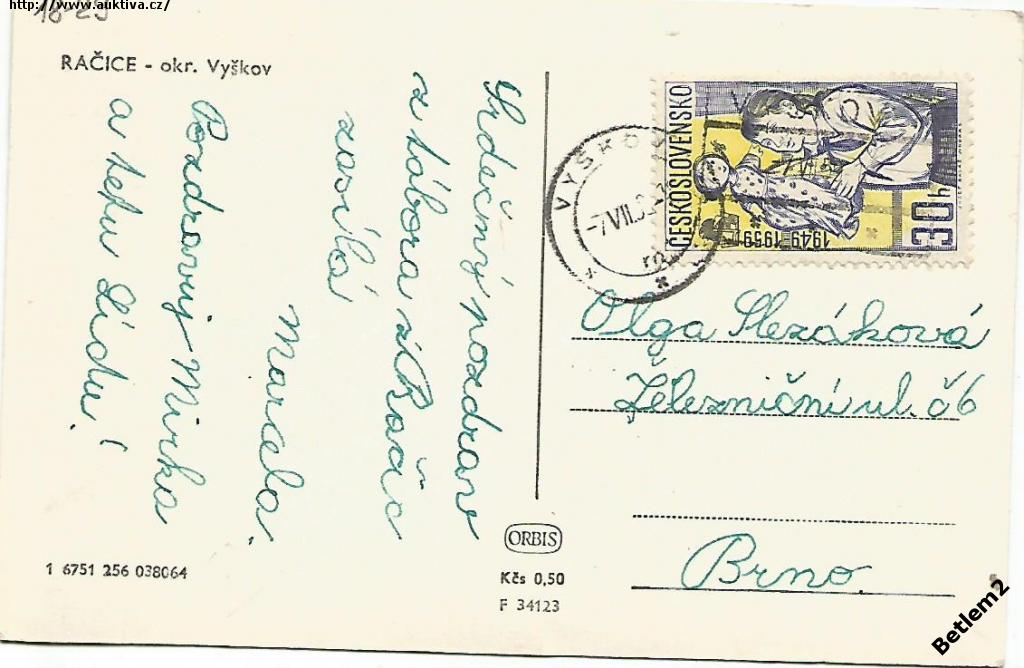 http://www.auktiva.cz/
18-25
RAČICE - okr. Vyškov
Srdečný pozdrav
z tábora z Račic
zasílá
Marcela.
Pozdravuj Mirka
a tetu Lídu!
VYŠKOV
-7.VII.
ČESKOSLOVENSKO
1949-1959
30h
Olga Slezáková
Železniční ul. č6
Brno.
ORBIS
Kčs 0,50
F 34123
1 6751 256 038064
Betlem2